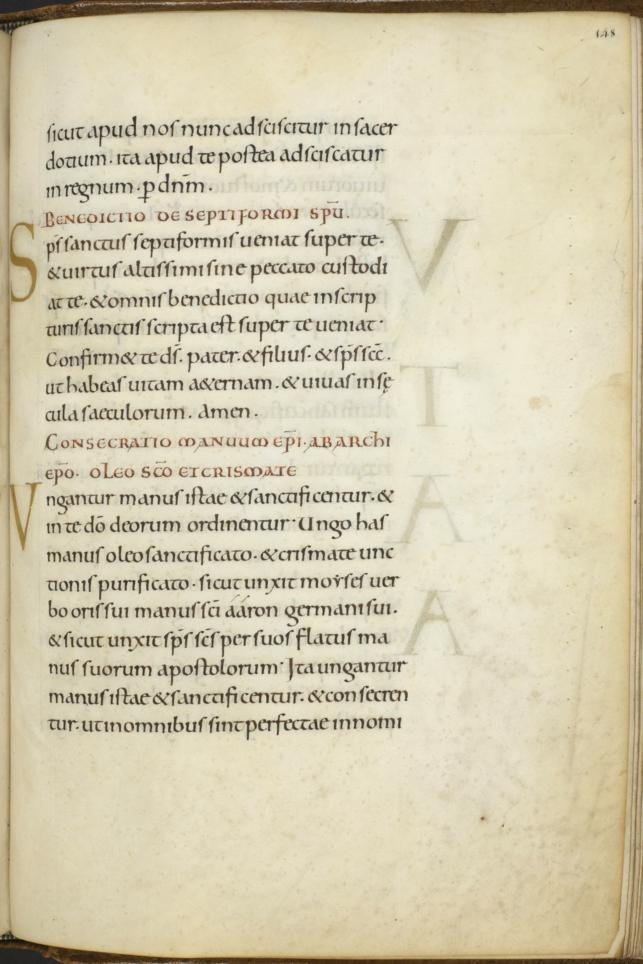 148
sicut apud nos nunc adsciscitur in sacer
dotium. ita apud te postea adsciscatur
in regnum. p̄ dn̄m.
BENEDICTIO DE SEPTIFORMI SPŪ.
Sp̄s sanctus septiformis ueniat super te.
& uirtus altissimi sine peccato custodi
at te. & omnis benedictio quae in scrip
turis sanctis scripta est super te ueniat.
Confirm& te d̄s. pater. & filius. & sp̄s sc̄s.
ut habeas uitam a&ernam. & uiuas in sę
cula saeculorum. Amen.
CONSECRATIO MANUUM EP̄I. AB ARCHI
EP̄O. OLEO SC̄O ET CRISMATE
Vngantur manus istae & sanctificentur. &
in te dō deorum ordinentur. Ungo has
manus oleo sanctificato. & crismate unc
tionis purificato. sicut unxit moẏses uer
bo oris sui manus sc̄i ááron germani sui.
& sicut unxit sp̄s sc̄s per suos flatus ma
nus suorum apostolorum. Ita ungantur
manus istae & sanctificentur. & consecren
tur. ut in omnibus sint perfectae in nomi